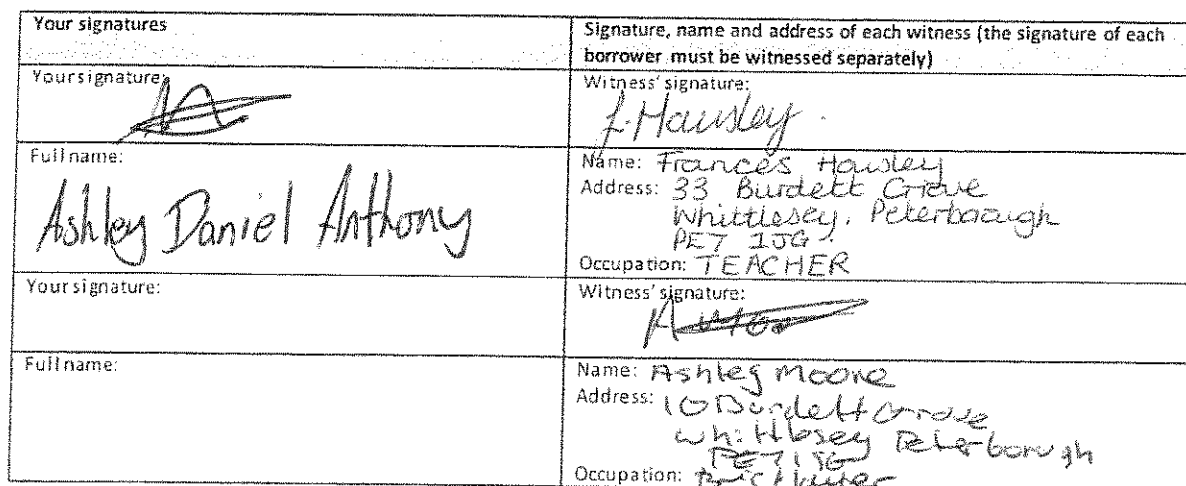 Your signatures
Signature, name and address of each witness (the signature of each
borrower must be witnessed separately)
Your signature:
Witness' signature:
f. Hawsley.
Full name:
Ashley Daniel Anthony
Name: Frances Hawsley
Address: 33 Burdett Grove
Whittlesey. Peterborough
PE7 1JG.
Occupation: TEACHER
Your signature:
Witness' signature:
Full name:
Name: Ashley Moore
Address: 10 Burdett Grove
Whittlesey Peterborough
PE7 1JG
Occupation: Bricklayer